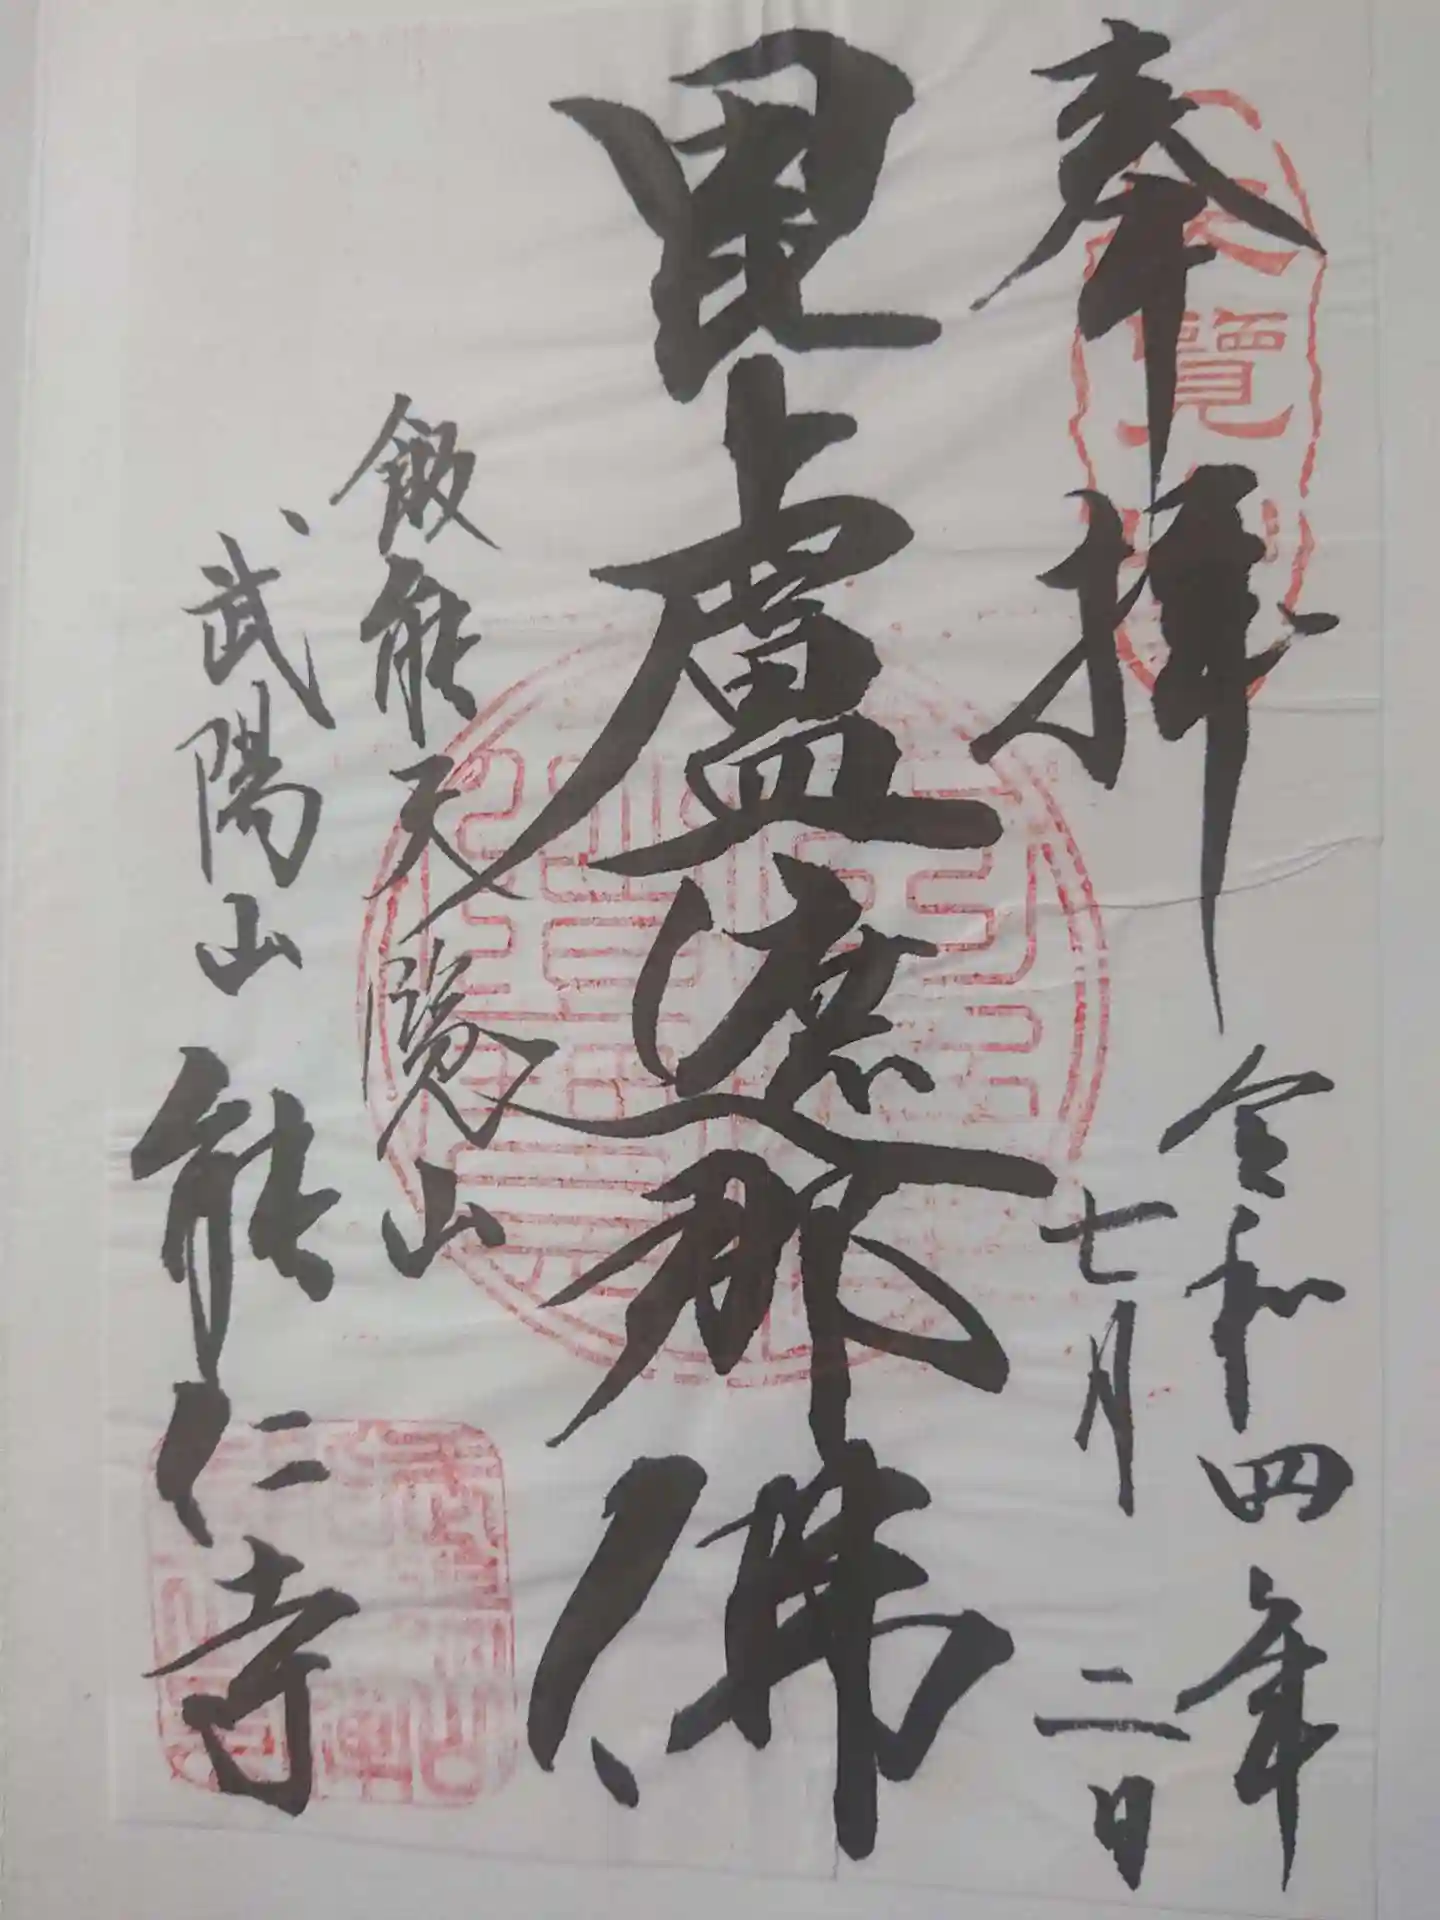 奉拝
令和四年
七月二日
毘盧遮那佛
飯能天覧山
武陽山能仁寺